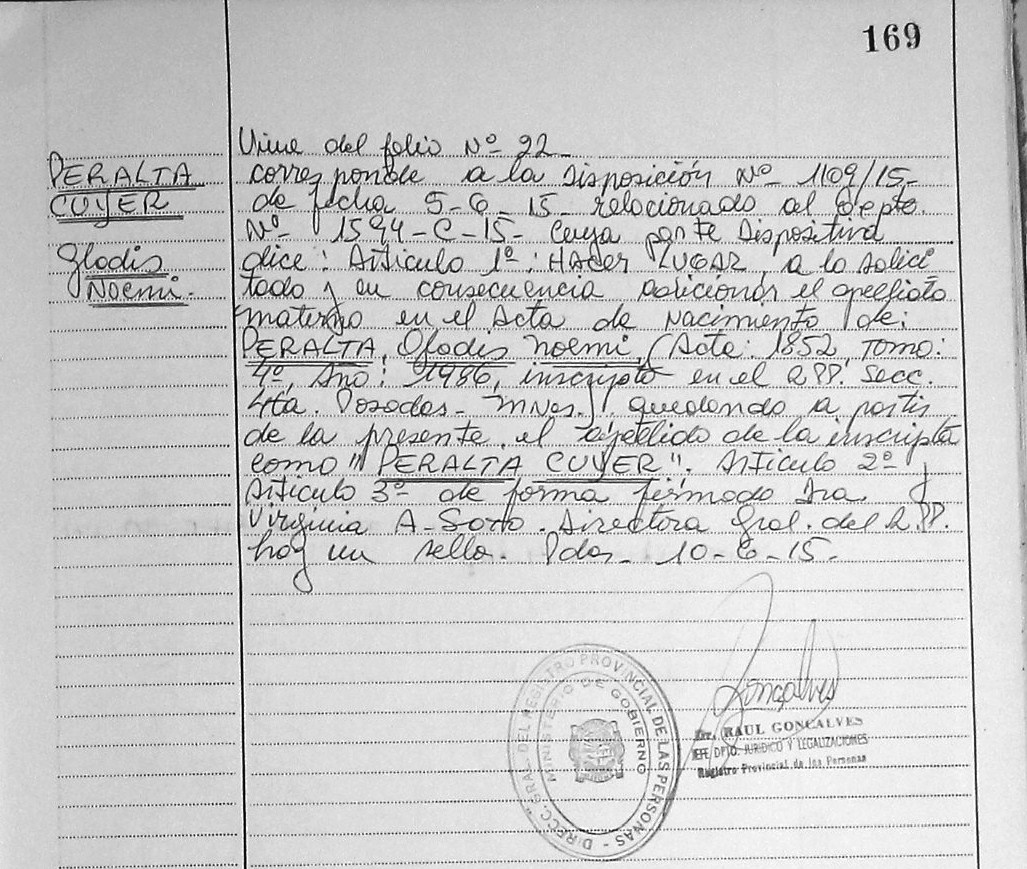 169
PERALTA
CUYER
Gladis
Noemi.
Viene del folio Nº 92
corresponde a la Disposición Nº 1109/15-
de fecha 5-6-15- relacionado al Expte.
Nº 1594-C-15- Cuya parte Dispositiva
dice: Artículo 1º: HACER LUGAR, a lo solici
tado y en consecuencia adicionar el apellido
materno en el Acta de Nacimiento de:
PERALTA, Gladis Noemi, (Acta: 1852, Tomo:
4º, Año: 1986, inscripta en el R.PP. Secc.
4ta. Posadas- Mnes.). quedando a partir
de la presente, el apellido de la inscripta
como "PERALTA CUYER". Artículo 2º y
Artículo 3º de forma firmado Dra.
Virginia A. Soto. Directora Gral. del R.PP.
hay un sello. Pdas- 10-6-15-
DIRECC. GRAL. DEL REGISTRO PROVINCIAL DE LAS PERSONAS -
MINISTERIO DE GOBIERNO
Goncalves
Dr. RAUL GONCALVES
JEFE DPTO. JURIDICO Y LEGALIZACIONES
Registro Provincial de las Personas